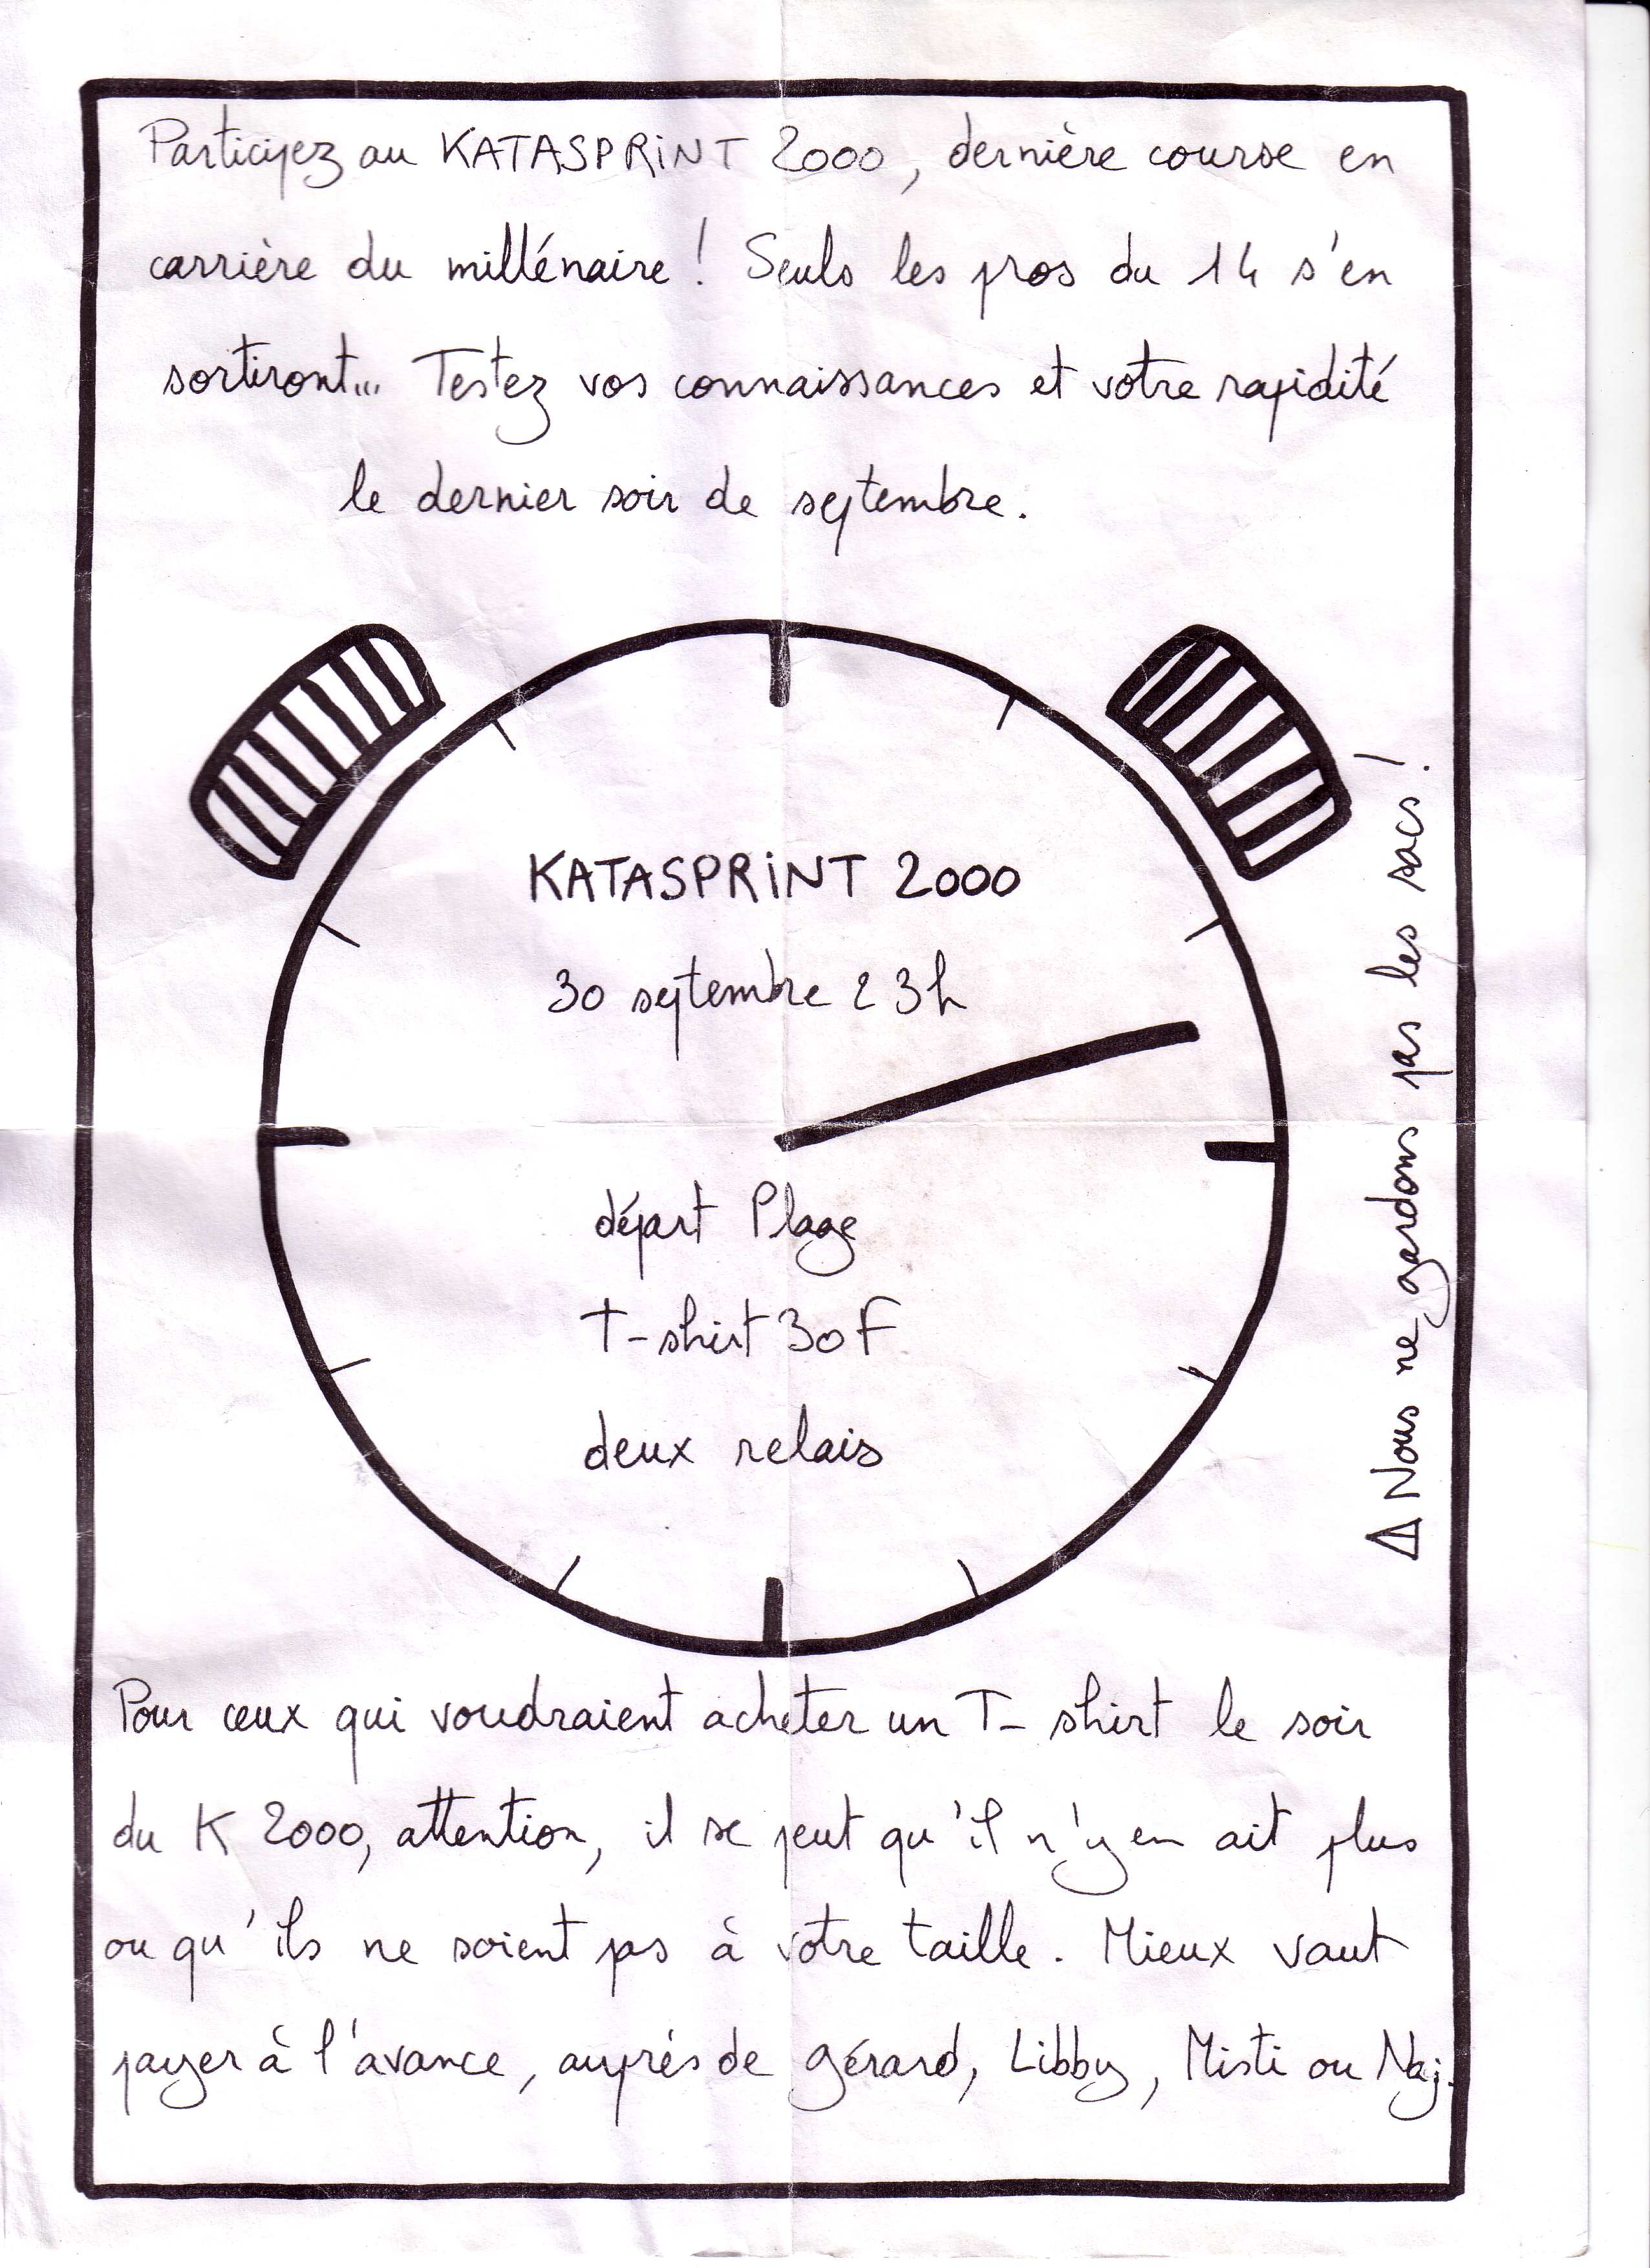 Participez au KATASPRiNT 2000, dernière course en
carrière du millénaire ! Seuls les pros du 14 s'en
sortiront... Testez vos connaissances et votre rapidité
le dernier soir de septembre.
KATASPRiNT 2000
30 septembre 23h
départ Plage
T-shirt 30F
deux relais
⚠ Nous ne gardons pas les sacs !
Pour ceux qui voudraient acheter un T-shirt le soir
du K 2000, attention, il se peut qu'il n'y en ait plus
ou qu'ils ne soient pas à votre taille. Mieux vaut
payer à l'avance, auprès de Gérard, Libby, Misti ou Naj.